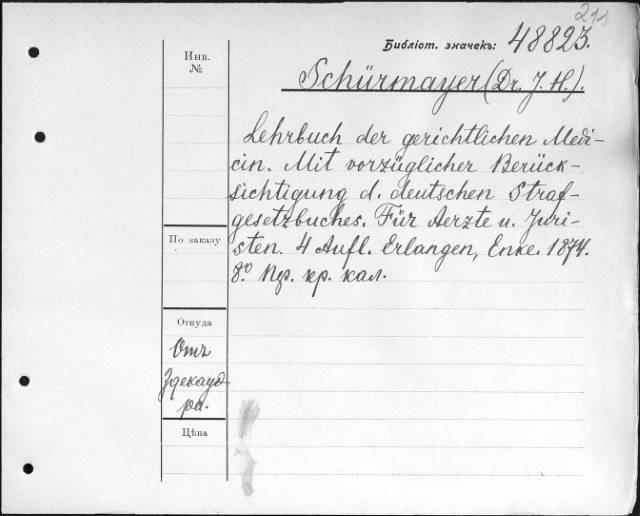 Библіот. значекъ: 48823.
Инв.
№
Schürmayer (Dr. J. H.).
Lehrbuch der gerichtlichen Medi-
cin. Mit vorzüglicher Berück-
sichtigung d. deutschen Straf-
gesetzbuches. Für Aerzte u. Juri-
sten. 4 Aufl. Erlangen, Enke. 1874.
8.° Пер. кр. кал.
По заказу
Откуда
Отъ
Здекауэ-
ра.
Цѣна